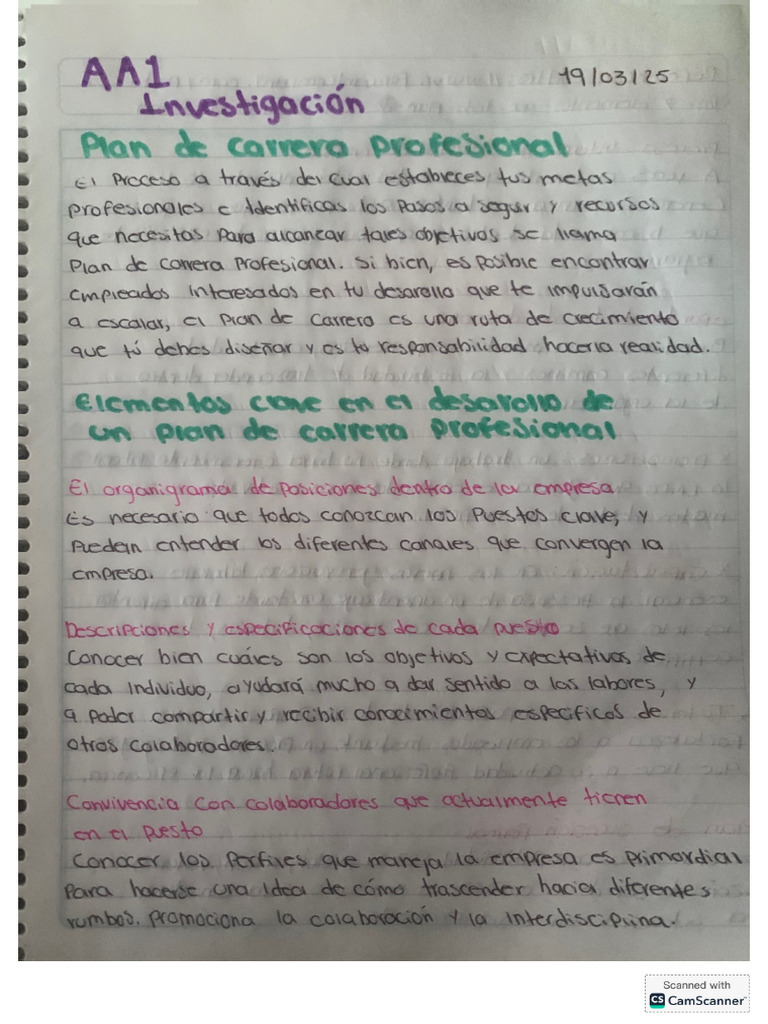 AA1
19/03/25
Investigación
Plan de carrera profesional
El Proceso a través del cual estableces tus metas
profesionales e Identificas los Pasos a seguir y recursos
que necesitas Para alcanzar tales objetivos se llama
Plan de carrera Profesional. Si bien, es Posible encontrar
empleados interesados en tu desarollo que te impulsarán
a escalar, el Plan de Carrera es una ruta de crecimiento
que tú debes diseñar y es tu responsabilidad hacerla realidad.
Elementos clave en el desarollo de
un plan de carrera profesional
El organigrama de posiciones dentro de la empresa
Es necesario que todos conozcan los Puestos clave, y
Puedan entender los diferentes canales que convergen la
empresa.
Descripciones y especificaciones de cada puesto
Conocer bien cuáles son los objetivos y expectativas de
cada individuo, ayudará mucho a dar sentido a las labores, y
a Poder compartir y recibir conocimientos especificos de
otros colaboradores.
Convivencia con colaboradores que actualmente tienen
en el puesto
Conocer los Perfiles que maneja la empresa es primordial
Para hacerse una idea de cómo trascender hacia diferentes
rumbos. Promociona la colaboración y la interdisciplina.
Scanned with
CS CamScanner